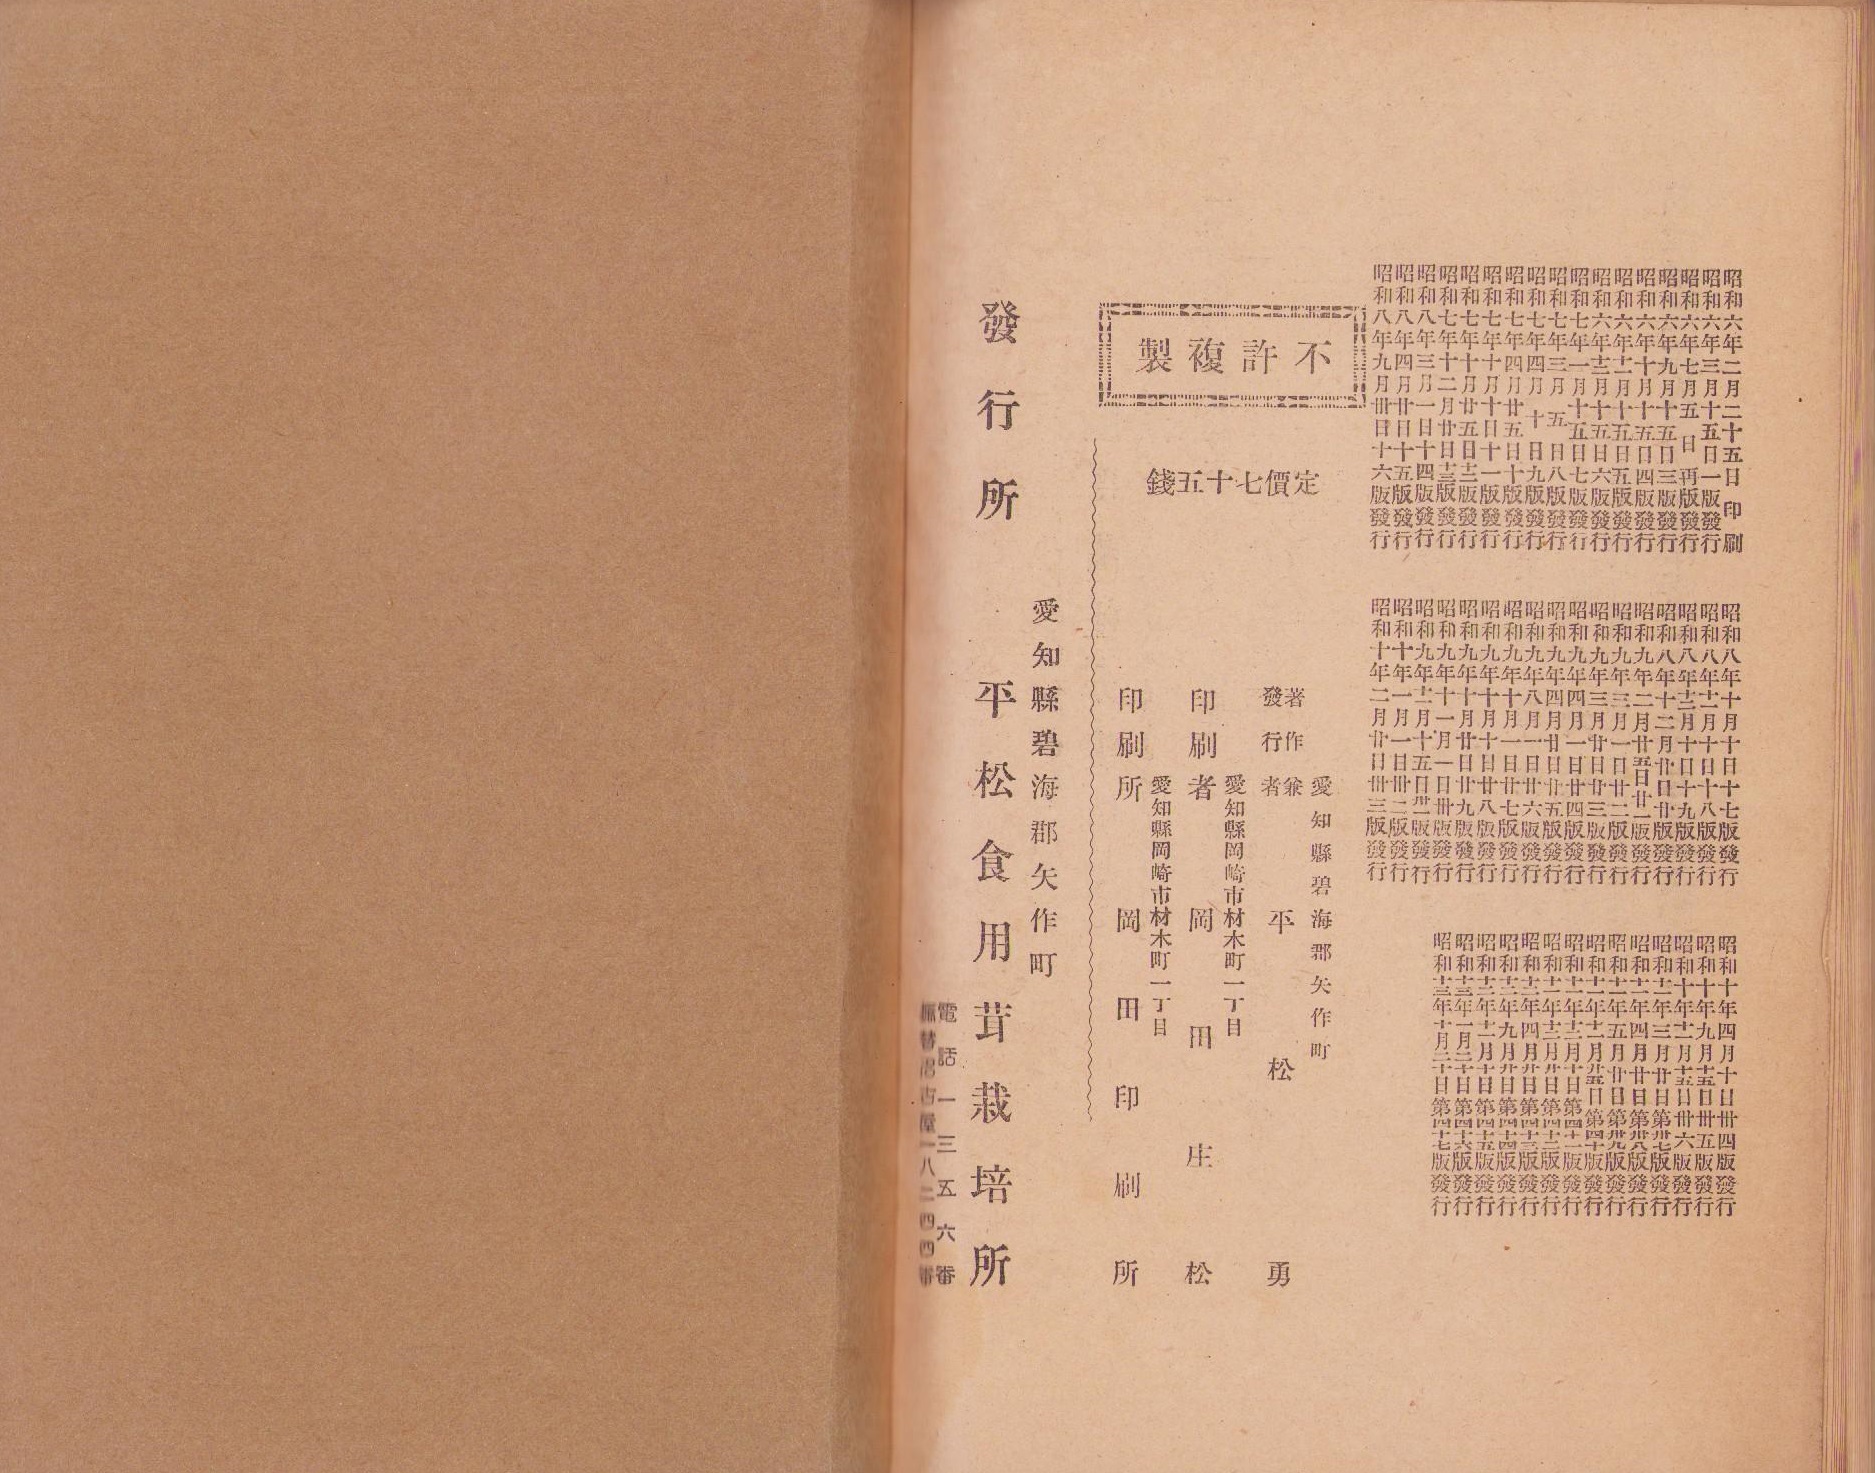 昭和六年二月二十五日印刷
昭和六年三月十五日一版發行
昭和六年七月五日再版發行
昭和六年九月十五日三版發行
昭和六年十月十五日四版發行
昭和六年十一月十五日五版發行
昭和六年十二月十五日六版發行
昭和七年一月十五日七版發行
昭和七年三月五日八版發行
昭和七年四月十日九版發行
昭和七年四月廿五日十版發行
昭和七年十月十日十一版發行
昭和七年十月廿五日十二版發行
昭和七年十二月廿日十三版發行
昭和八年三月一日十四版發行
昭和八年四月廿日十五版發行
昭和八年九月卅日十六版發行
昭和八年十月十日十七版發行
昭和八年十一月十日十八版發行
昭和八年十二月十日十九版發行
昭和八年十二月廿日廿版發行
昭和九年二月廿五日廿一版發行
昭和九年三月一日廿二版發行
昭和九年三月廿日廿三版發行
昭和九年四月一日廿四版發行
昭和九年四月廿日廿五版發行
昭和九年八月一日廿六版發行
昭和九年十月一日廿七版發行
昭和九年十月十日廿八版發行
昭和九年十月廿日廿九版發行
昭和九年十一月一日卅版發行
昭和九年十二月十五日卅一版發行
昭和十年一月一日卅二版發行
昭和十年二月廿日卅三版發行
昭和十年四月十日卅四版發行
昭和十年九月十五日卅五版發行
昭和十年十一月十五日卅六版發行
昭和十一年三月廿日第卅七版發行
昭和十一年四月廿日第卅八版發行
昭和十一年五月廿日第卅九版發行
昭和十一年十一月廿五日第四十版發行
昭和十一年十二月十日第四十一版發行
昭和十一年十二月廿日第四十二版發行
昭和十二年四月廿日第四十三版發行
昭和十二年九月廿日第四十四版發行
昭和十二年十一月十日第四十五版發行
昭和十三年一月二十日第四十六版發行
昭和十三年十月二十日第四十七版發行
不許複製
定價七十五錢
愛知縣碧海郡矢作町
著作兼
發行者
平松勇
愛知縣岡崎市材木町一丁目
印刷者 岡田庄松
愛知縣岡崎市材木町一丁目
印刷所 岡田印刷所
愛知縣碧海郡矢作町
發行所 平松食用茸栽培所
電話一三五六番
古屋一八二四四番